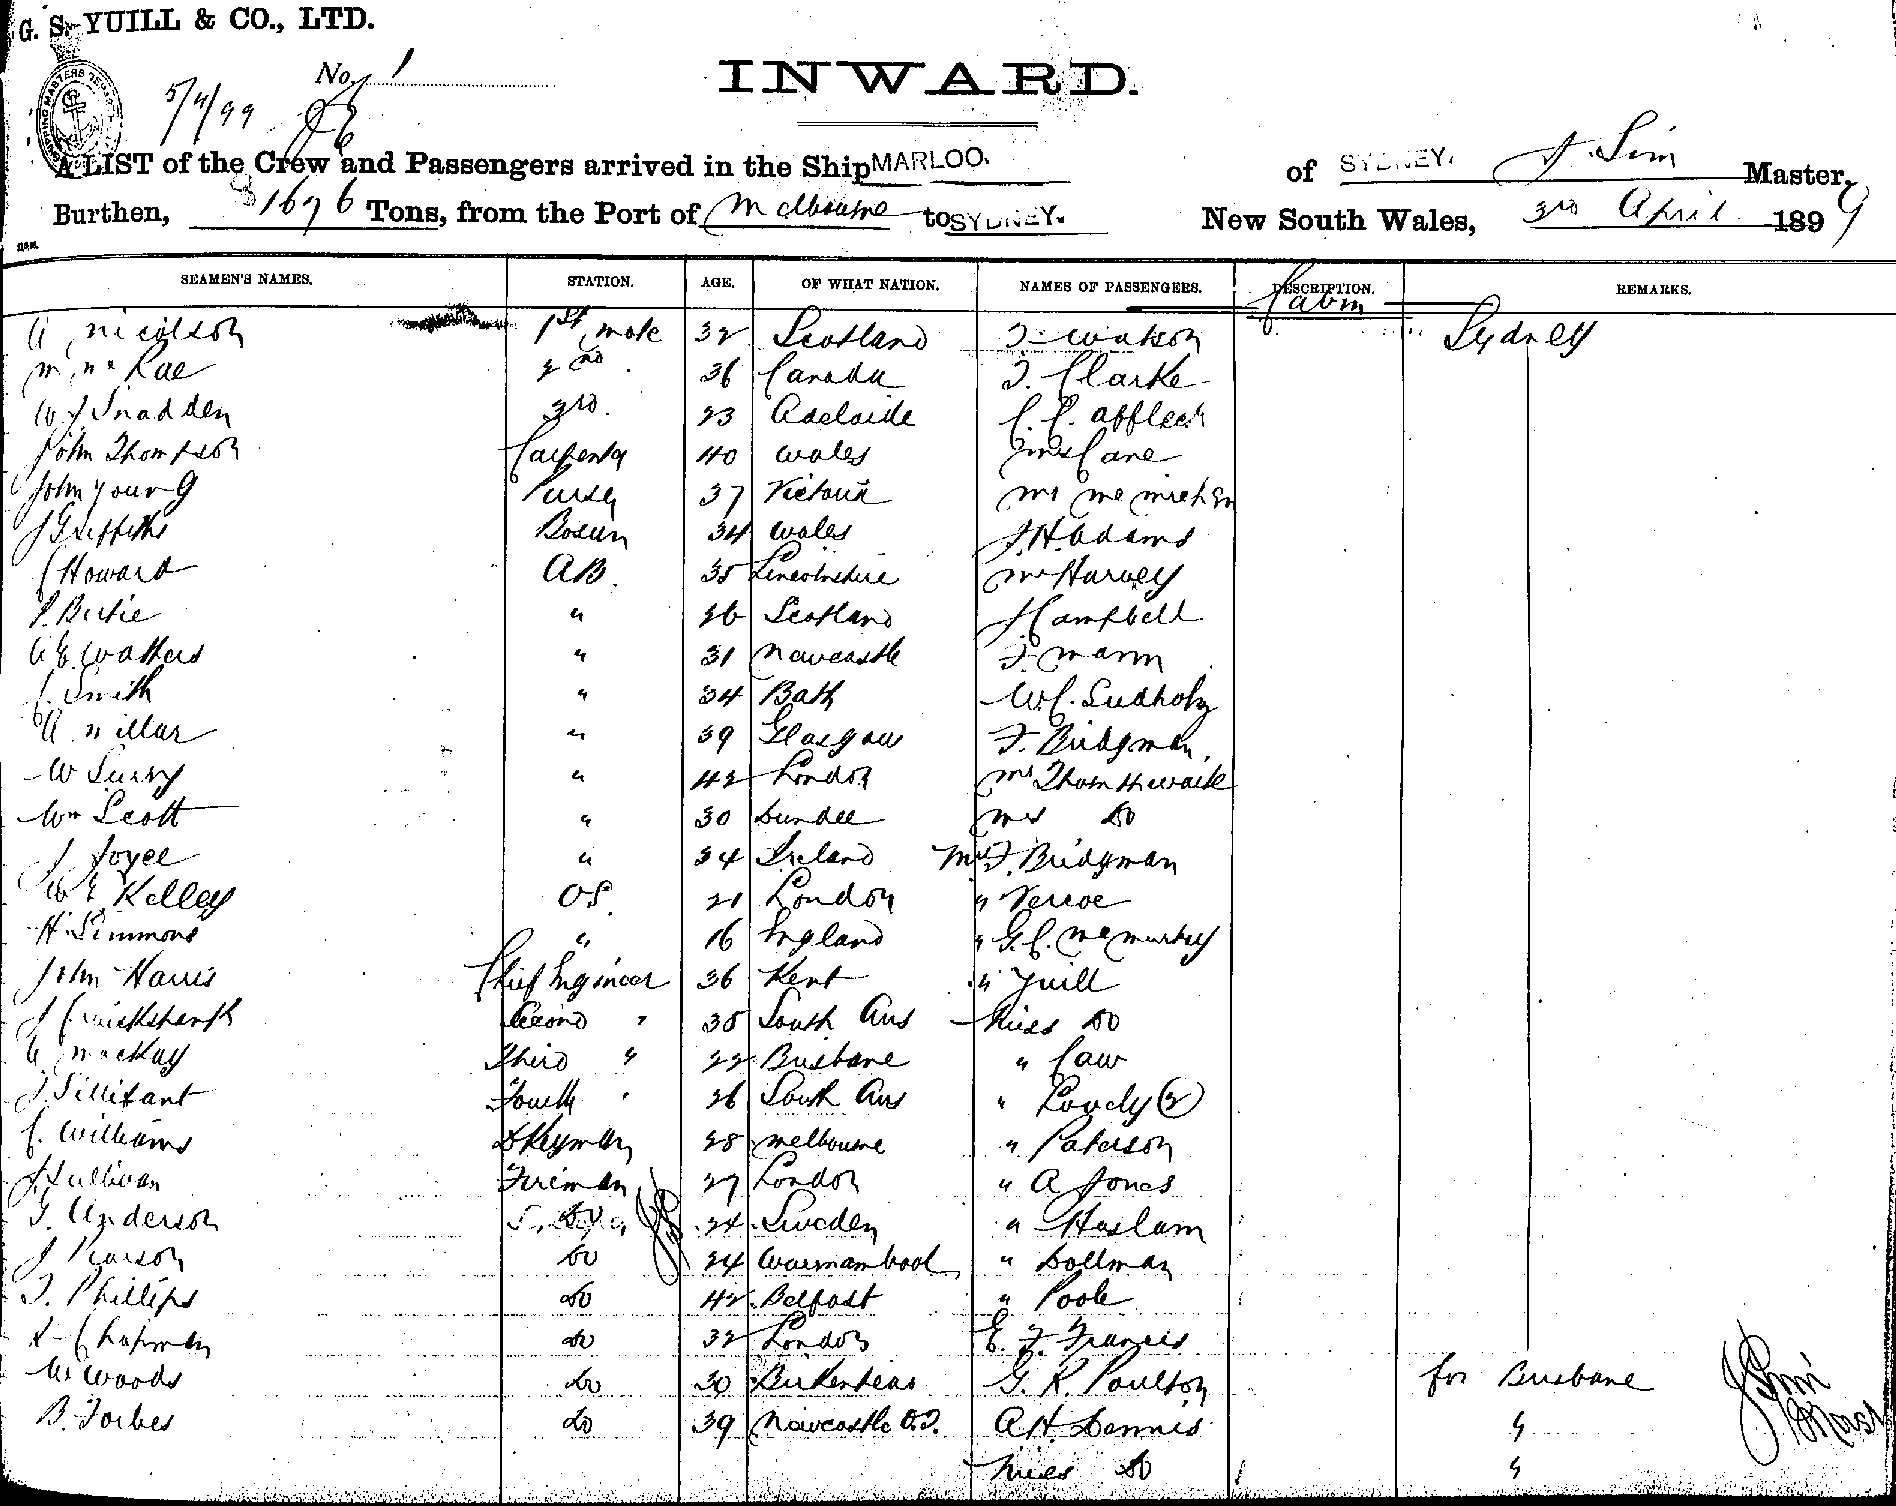 G. S. YUILL & CO., LTD.
No. 1
INWARD.
5/4/99
A LIST of the Crew and Passengers arrived in the Ship MARLOO. of SYDNEY. J. Sim Master,
Burthen, 1676 Tons, from the Port of Melbourne to SYDNEY. New South Wales, 3rd April 1899
SEAMEN'S NAMES. STATION. AGE. OF WHAT NATION. NAMES OF PASSENGERS. DESCRIPTION. REMARKS.
Cabin
A Nicolson 1st mate 32 Scotland J Watson Sydney
M McRae 2nd 36 Canada J. Clarke
W J Snadden 3rd 23 Adelaide C. C. Affleck
John Thompson Carpenter 40 Wales Mrs Cane
John Young Purser 37 Victoria Mr
J Griffiths Bosun 34 Wales J. H. Adams
C Howard AB. 35 Lincolnshire Mr Harvey
P. Birtie " 26 Scotland J Campbell
A E Watters " 31 Newcastle F. Mann
C. Smith " 34 Bath W. C. Sudholz
A Millar " 39 Glasgow F. Bridgman
W Surry " 42 London Mr Thornthwaite
Wm Scott " 30 Dundee Mrs Do
J Joyce " 34 Ireland Mrs F. Bridgman
W E Kelley OS. 21 London " Vercoe
H. Simmons " 16 England " G. C. McMurtry
John Harris Chief Engineer 36 Kent " Yuill
J Cruickshank Second " 35 South Aus Miss Do
A Mackay Third " 22 Brisbane " Caw
J. Sillifant Fourth " 26 South Aus " Lovely (2)
C. Williams Dkeyman 28 Melbourne " Paterson
J. Sullivan Fireman 27 London " A Jones
G. Anderson Do 24 Sweden " Haslam
J Pearson Do 24 Warrnambool " Dollman
T. Phillips Do 42 Belfast " Poole
Chapman Do 32 London E. F. Francis
W Woods Do 30 Birkenhead G. R. Poulton for Brisbane
B. Forbes Do 39 Newcastle O.T. A. H. Dennis "
Miss Do "
J Sim
Mast